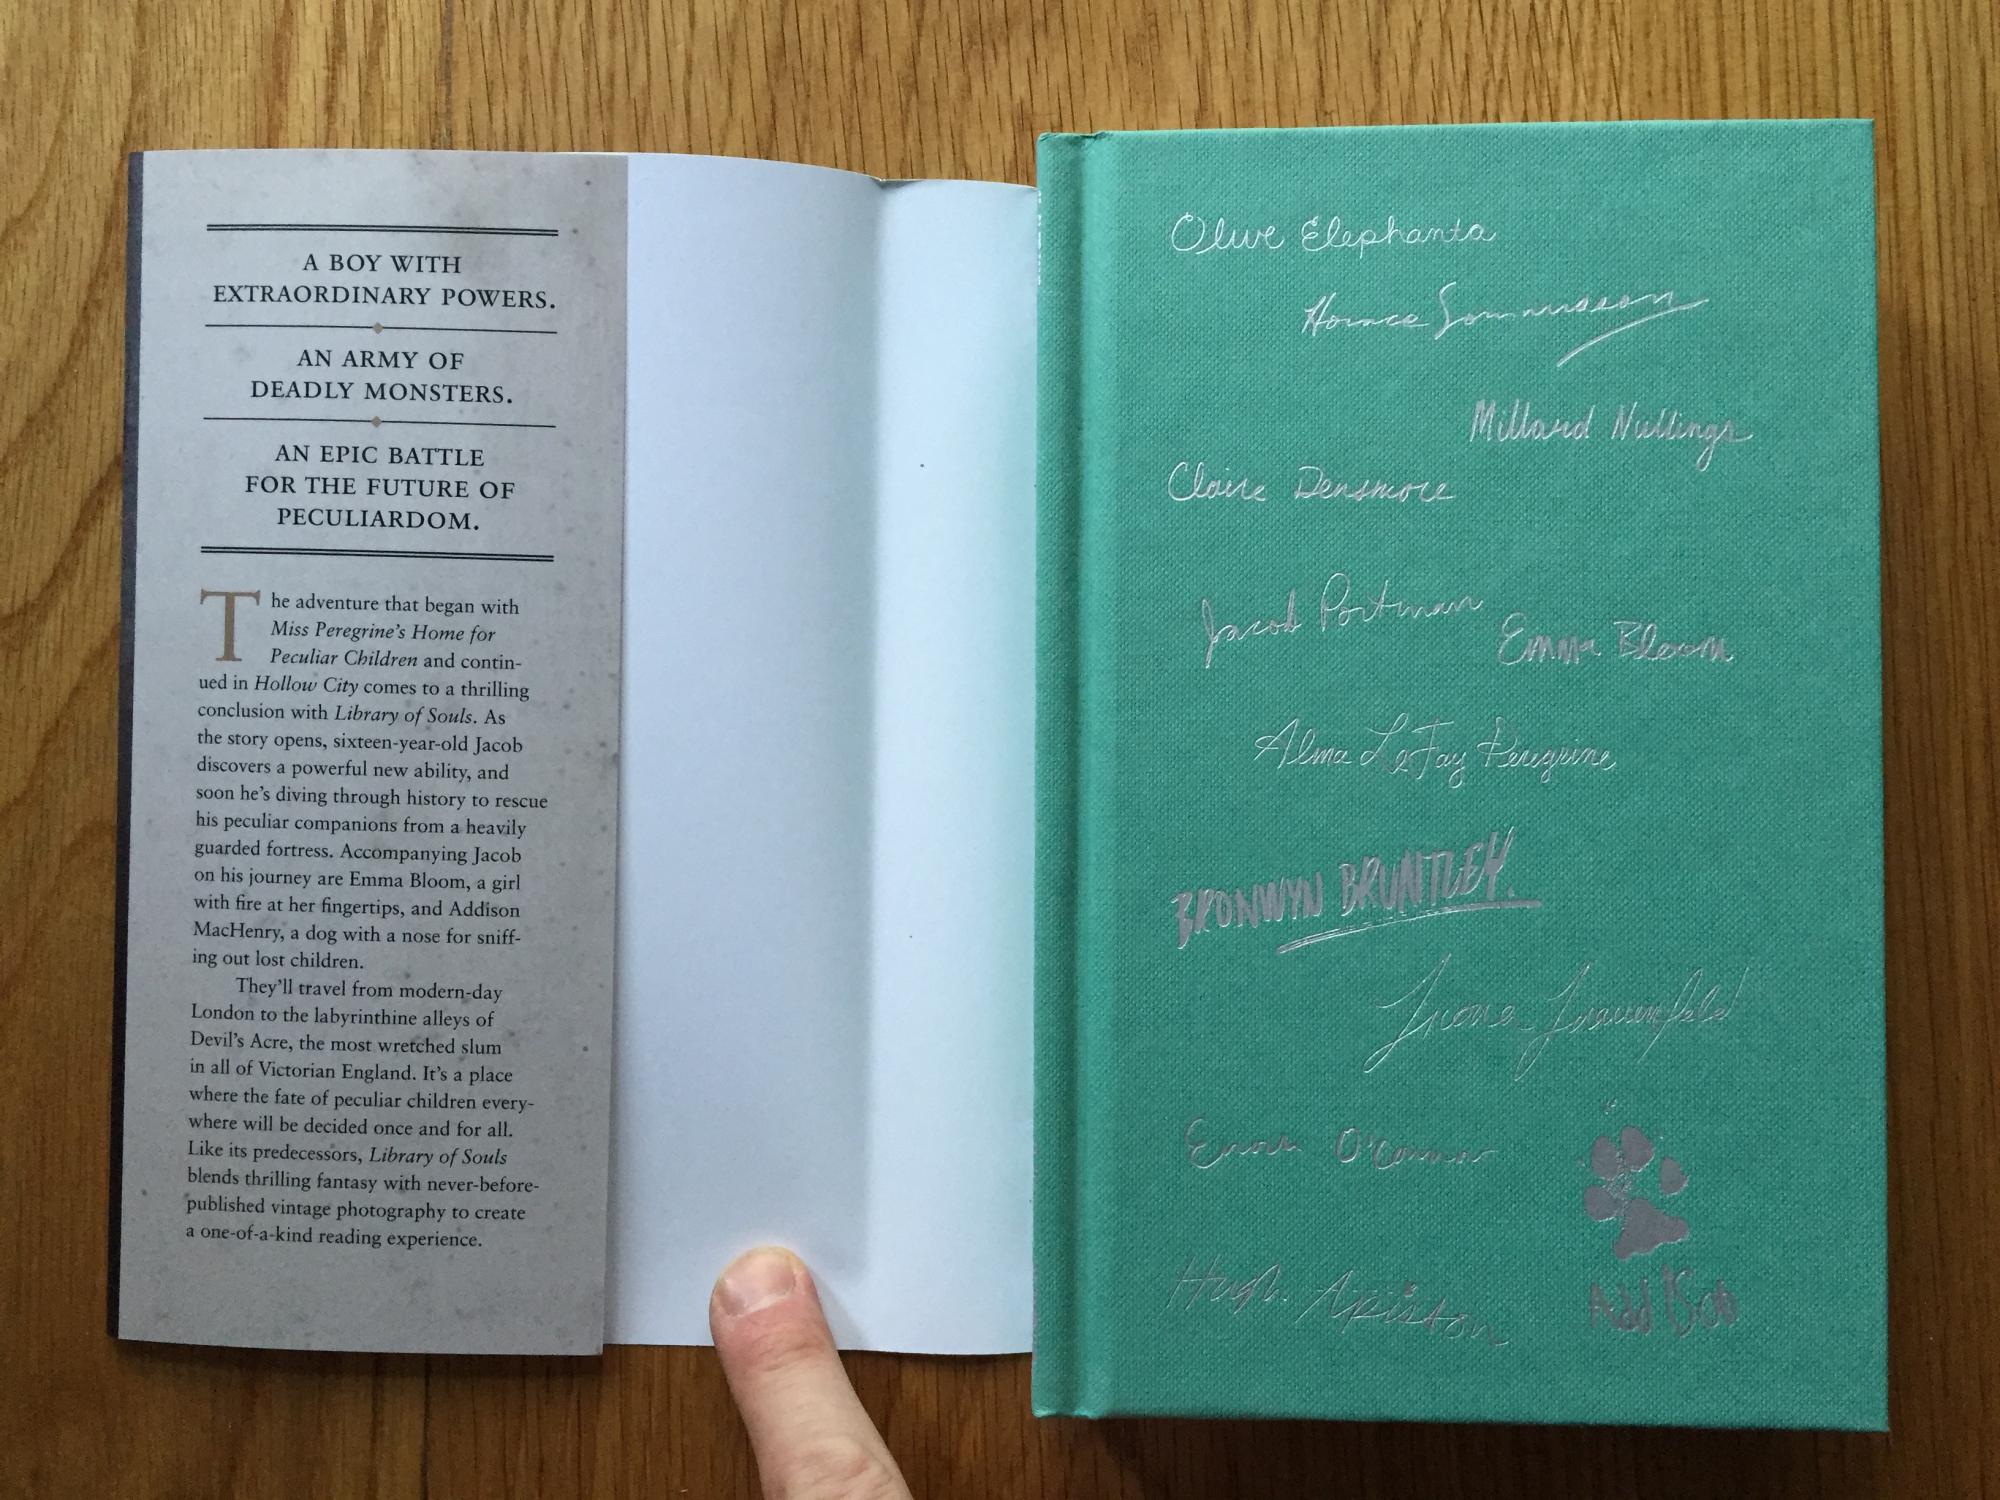 A BOY WITH
EXTRAORDINARY POWERS.
AN ARMY OF
DEADLY MONSTERS.
AN EPIC BATTLE
FOR THE FUTURE OF
PECULIARDOM.
The adventure that began with
Miss Peregrine's Home for
Peculiar Children and contin-
ued in Hollow City comes to a thrilling
conclusion with Library of Souls. As
the story opens, sixteen-year-old Jacob
discovers a powerful new ability, and
soon he's diving through history to rescue
his peculiar companions from a heavily
guarded fortress. Accompanying Jacob
on his journey are Emma Bloom, a girl
with fire at her fingertips, and Addison
MacHenry, a dog with a nose for sniff-
ing out lost children.
They'll travel from modern-day
London to the labyrinthine alleys of
Devil's Acre, the most wretched slum
in all of Victorian England. It's a place
where the fate of peculiar children every-
where will be decided once and for all.
Like its predecessors, Library of Souls
blends thrilling fantasy with never-before-
published vintage photography to create
a one-of-a-kind reading experience.
Olive Elephanta
Horace Somnusson
Millard Nullings
Claire Densmore
Jacob Portman
Emma Bloom
Alma LeFay Peregrine
BRONWYN BRUNTLEY.
Fiona Frauenfeld
Enoch O'Connor
Hugh Apiston